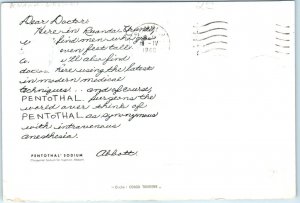 Dear Doctor:
Here in Ruanda-Urundi
find men who
even feet tall
will also find
doctors here using the latest
in modern medical
techniques... and of course,
PENTOTHAL. Surgeons the
world over think of
PENTOTHAL as synonymous
with intravenous
anesthesia.
PENTOTHAL® SODIUM
Abbott